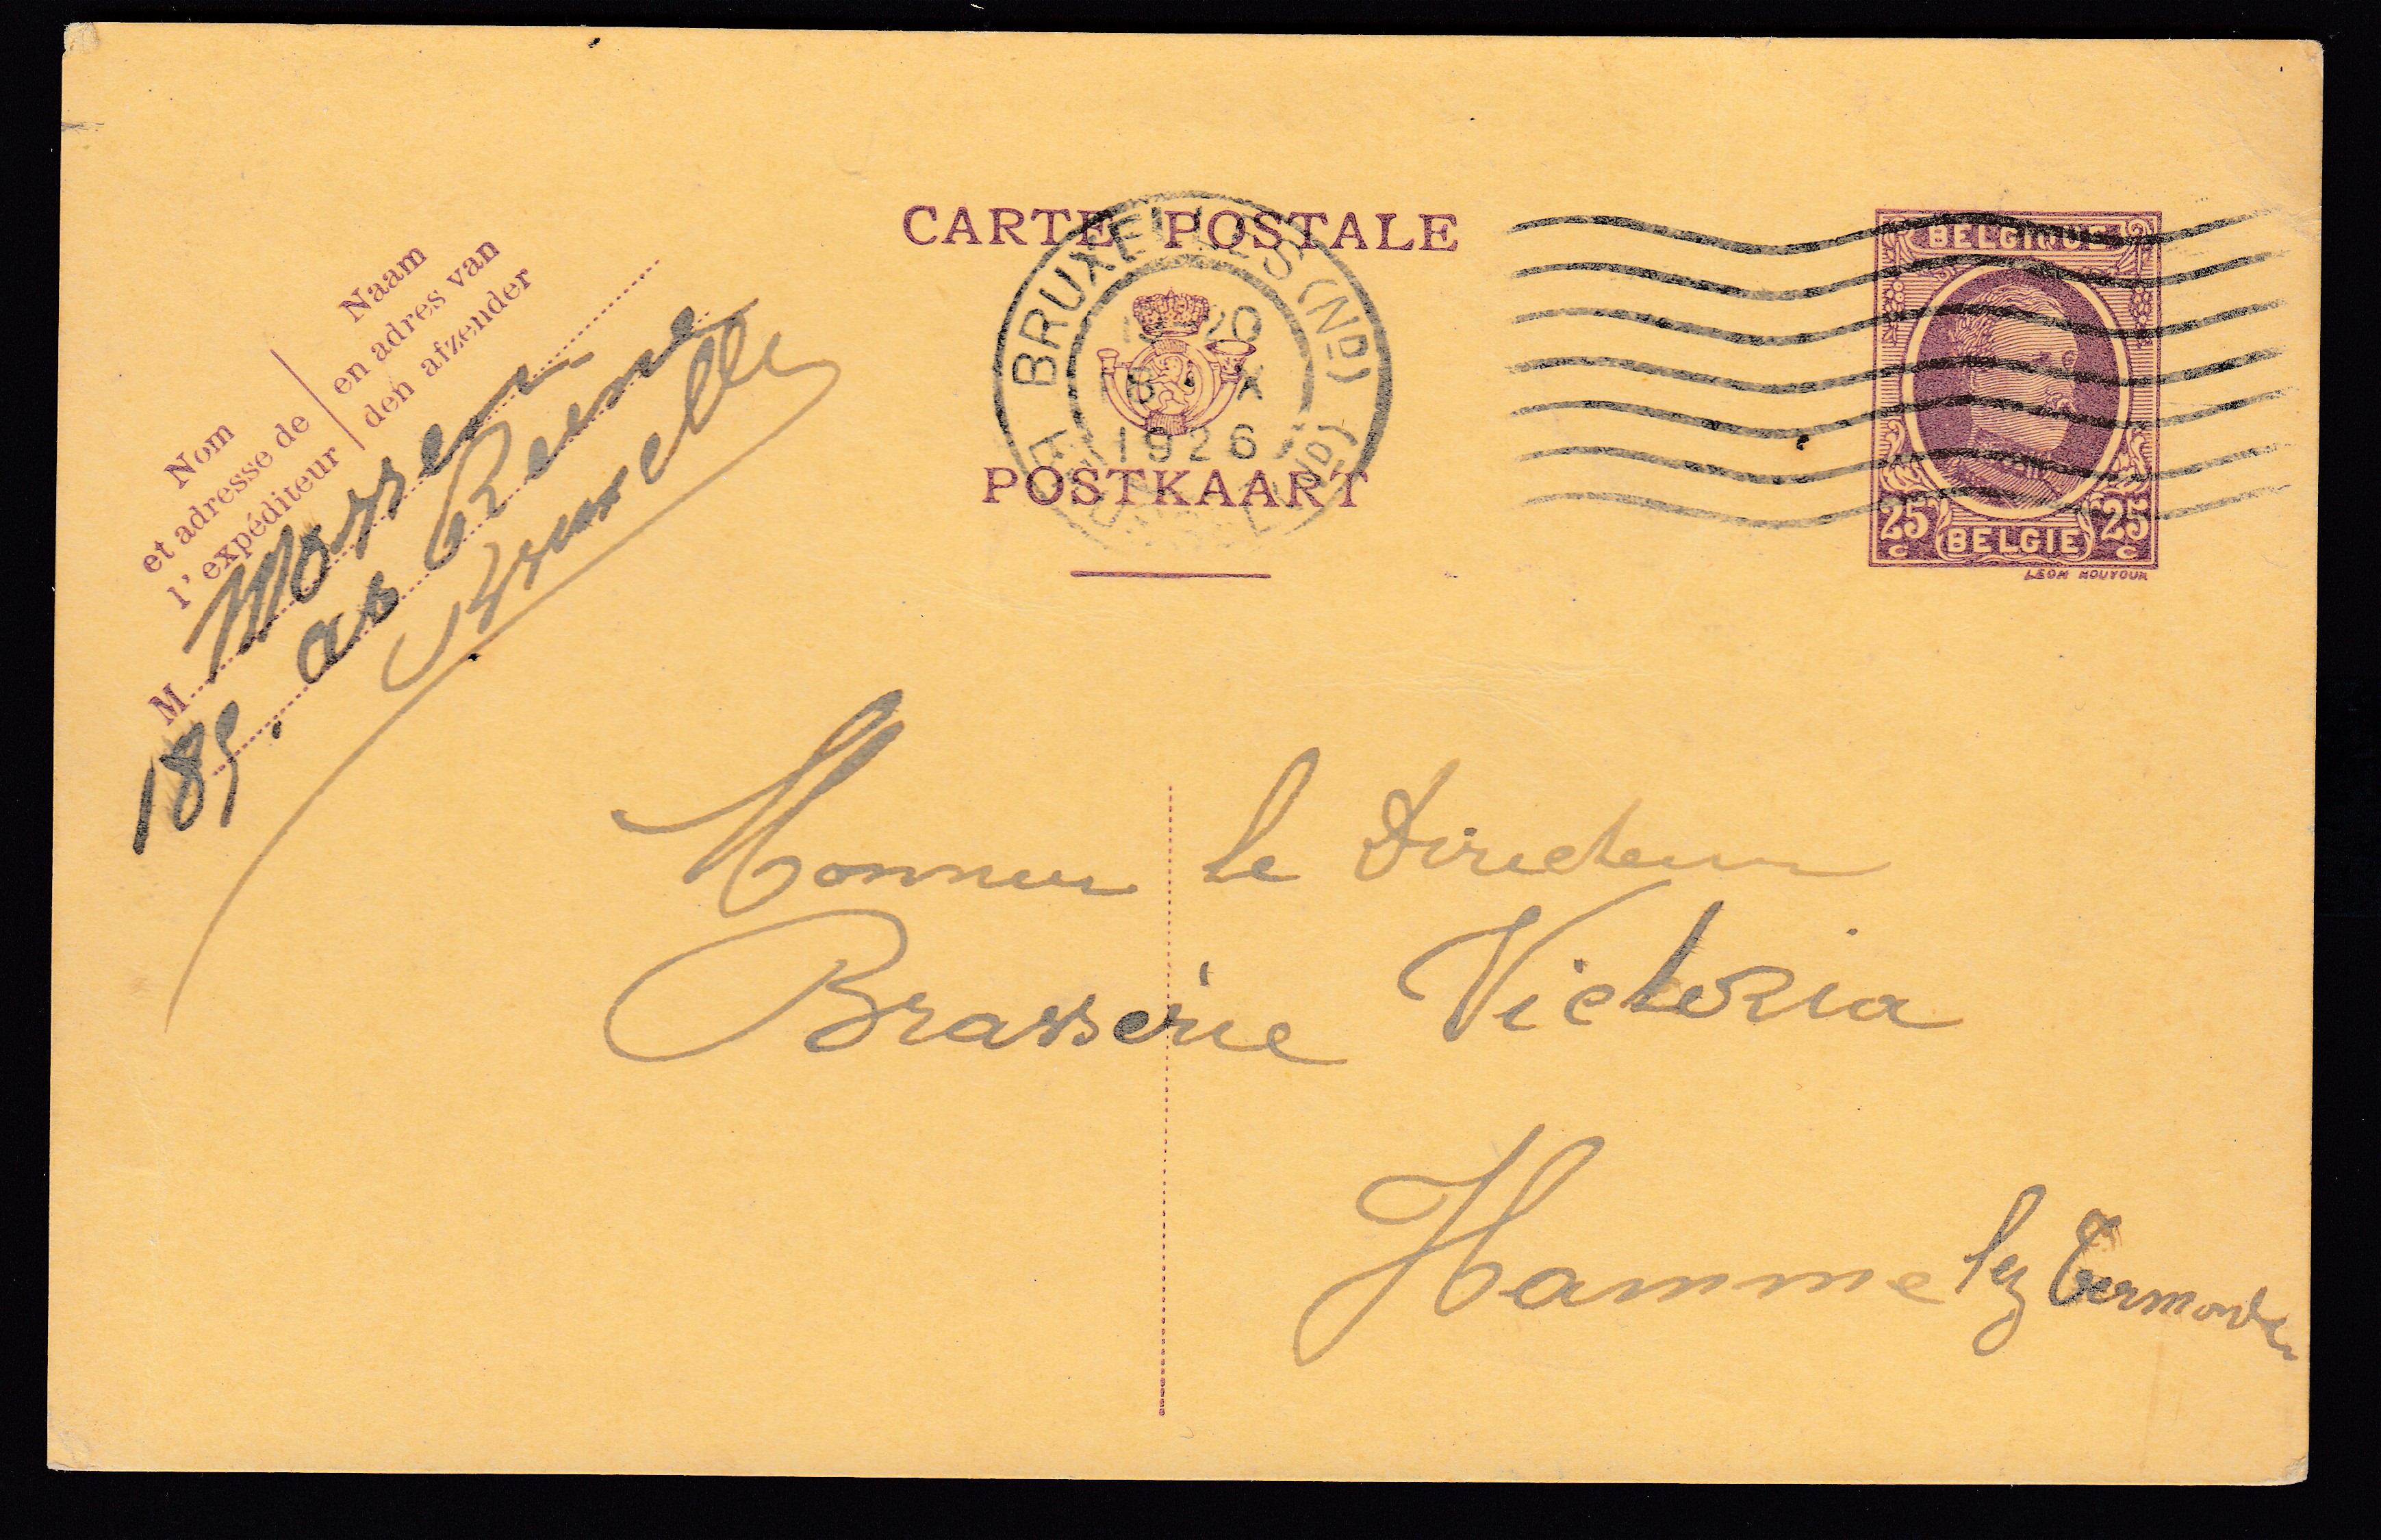 CARTE POSTALE
POSTKAART
BRUXELLES (ND)
1926
BELGIQUE
25 c BELGIE 25 c
Nom
et adresse de
l'expéditeur
Naam
en adres van
den afzender
M
189. av Reine
Bruxelles
Monsieur le Directeur
Brasserie Victoria
Hamme lez Termonde